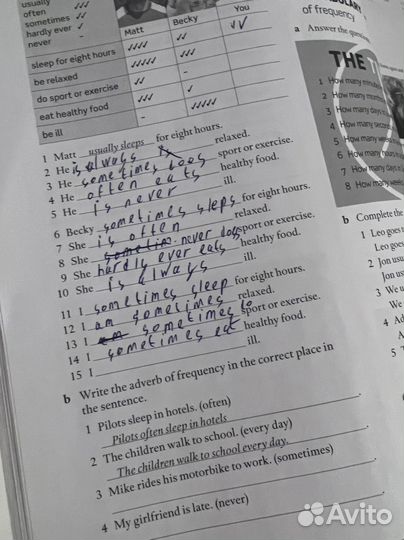 usually ✓✓✓
often ✓✓✓
sometimes ✓✓
hardly ever ✓
never –
Matt Becky You
sleep for eight hours ✓✓✓✓ ✓✓ ✓✓
be relaxed ✓✓✓✓✓ ✓✓✓
do sport or exercise ✓✓ –
eat healthy food ✓✓✓ ✓
be ill – ✓✓✓✓✓
1 Matt usually sleeps for eight hours.
2 He is always relaxed.
3 He sometimes does sport or exercise.
4 He often eats healthy food.
5 He is never ill.
6 Becky sometimes sleeps for eight hours.
7 She is often relaxed.
8 She never does sport or exercise.
9 She hardly ever eats healthy food.
10 She is always ill.
11 I sometimes sleep for eight hours.
12 I am sometimes relaxed.
13 I sometimes to sport or exercise.
14 I sometimes eat healthy food.
15 I ill.
b Write the adverb of frequency in the correct place in
the sentence.
1 Pilots sleep in hotels. (often)
Pilots often sleep in hotels
2 The children walk to school. (every day)
The children walk to school every day.
3 Mike rides his motorbike to work. (sometimes)
4 My girlfriend is late. (never)
of frequency
a Answer the
THE
1 How many
2 How many
3 How many days
4 How many
5 How many
6 How many hours
7 How many days
8 How many
b Complete the
1 Leo goes
Leo goes
2 Jon usu
Jon usu
3 We u
We
4 A
A
5 T
Avito